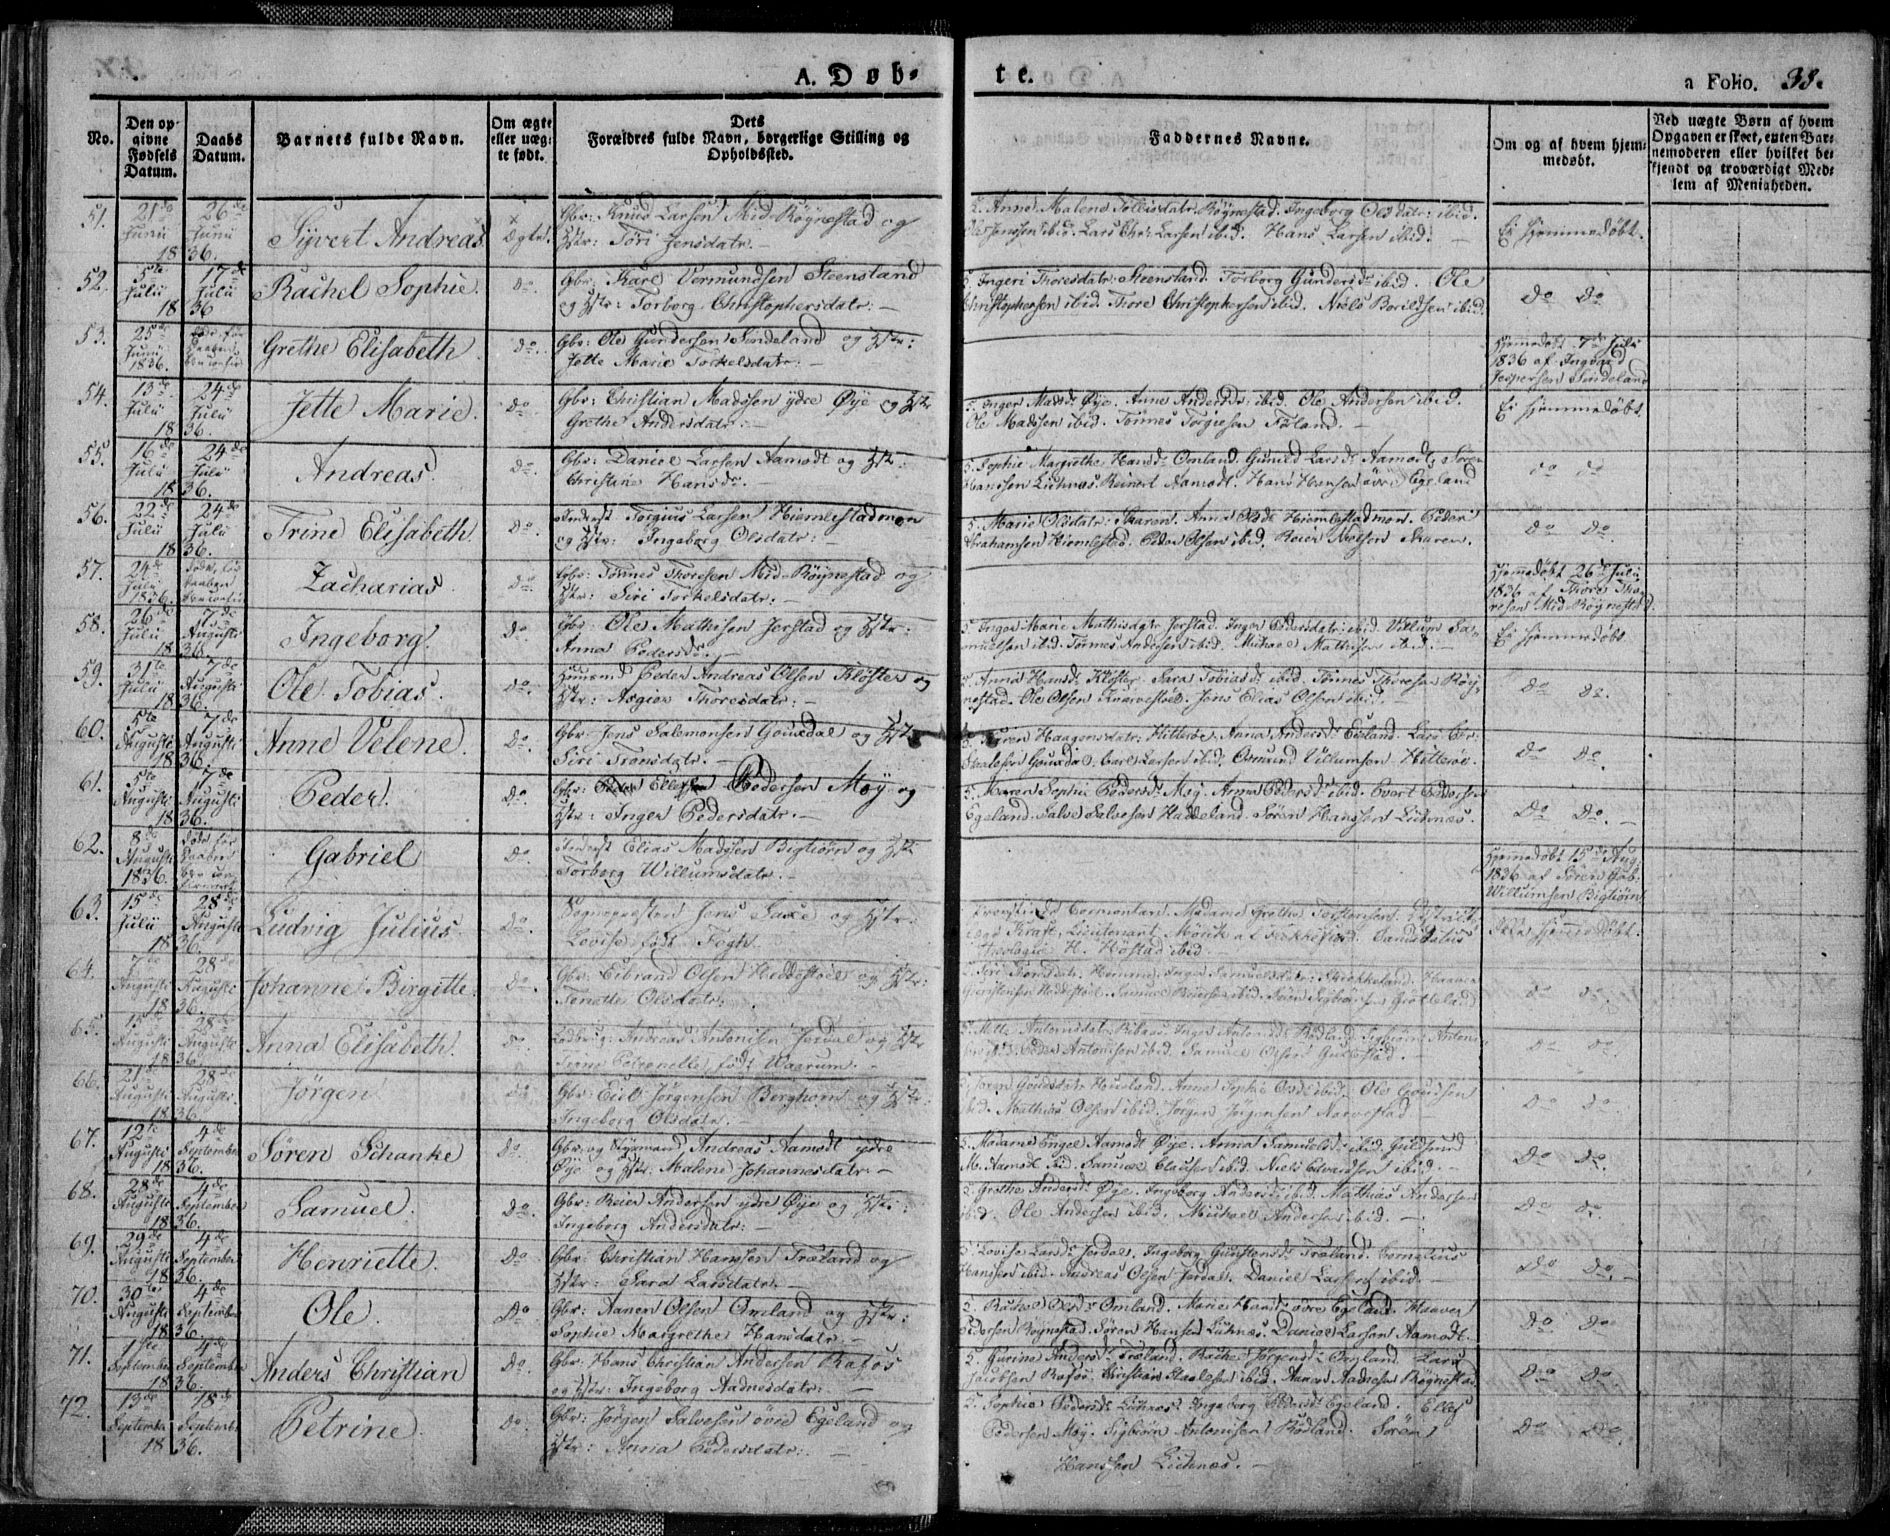 A. Døb-
te.
a Folio. 38.
No.
Den op-
givne
Fødsels
Datum.
Daabs
Datum.
Barnets fulde Navn.
Om ægte
eller uæg-
te født.
Dets
Forældres fulde Navn, borgerlige Stilling og
Opholdssted.
Faddernes Navne.
Om og af hvem hjem-
medøbt.
Ved uægte Børn af hvem
Opgaven er skeet, enten Bar-
nemoderen eller hvilket be-
kjendt og troværdigt Med-
lem af Menigheden.
51.
21de Junii 1836.
26de Junii
Syvert Andreas
Ægte
Gbr: Knud Larsen Mid-Røynestad og
Hstr: Tøri Jensdatr. —
Anne Malene Tollisdatr Røynestad. Ingeborg Olsdatr: ibid.
Ole Jenssen ibid. Lars Chr: Larsen ibid. Hans Larsen ibid. —
Ei hjemmedøbt.
52.
5te Julii 1836
17de Julii
Rachel Sophie.
Do
Gbr: Karl Vermundsen Steensland
og Hstr: Torborg Christophersdatr: —
5. Ingeri Thoresdatr: Steensland. Torborg Gundersdr ibid. Ole
Christophersen ibid. Thore Christophersen ibid. Niels Boreldsen ibid.
Do Do
53.
25de Junii 1836.
Grethe Elisabeth
Do.
Gbr: Ole Gundersen Sindeland og Hstr:
Jette Marie Torkelsdatr: —
Hjemmedøbt 7de Julii
1836 af Ingvald
Jespersen Sindeland
54.
13de Julii 1836.
24de Julii
Jette Marie.
Do
Gbr: Christian Madssen ydre Øye og Hstr
Grethe Andersdatr: —
5. Inger Madsdr Øye. Anne Andersdr: ibid. Ole Andersen ibid.
Ole Madssen ibid. Tønnes Torgiesen Føland. —
Ei hjemmedøbt
55.
16de Julii 1836.
24de Julii
Andreas.
Do
Gbr: Daniel Larsen Aamodt og Hstr:
Christine Hansdr. —
5. Sophie Margrethe Hansdr Omland. Gunild Larsdr Aamodt, Søren
Hanssen Lichnæs. Reinert Aamodt. Hans Hansen øvre Egeland
do do
56.
22de Julii 1836.
24de Julii
Trine Elisabeth
Do.
Inderst Torgius Larsen Hiemlestadmoen
og Hstr: Ingeborg Olsdatr: —
5. Marie Olsdatr: Skaren. Anna Olsdr Hiemlestadmon. Peder
Abrahamsen Hiemlestad. Peder Olsen ibid. Reier Nielsen Skaren.
Do Do.
57.
24de Julii 1836.
Zacharias
Do
Gbr: Tønnes Thoresen Mid-Røynestad og
Hstr: Siri Torkelsdatr: —
Hjemmedøbt 26de Julii
1836 af Thore Tho-
resen Mid-Røynestad.
58.
26de Julii 1836.
7de Augusti
Ingeborg.
Do
Gbr: Ole Mathisen Jerstad og Hstr:
Anna Pedersdr. —
5. Inger Marie Mathisdatr Jerstad. Inger Pedersdatr: ibid. Villum Sa-
muelsen ibid. Tønnes Andersen ibid. Michael Mathisen ibid. —
Ei hjemmedøbt
59.
31te Julii 1836.
7de Augusti
Ole Tobias.
Do.
Huusmd Peder Andreas Olsen Kloster og
Hstr: Aasgier Thoresdatr: —
Anna Hansdr Kloster. Sara Tobiasdr ibid. Tønnes Thoresen Røy-
nestad. Ole Olsen Knarvestøl. Jens Elias Olsen ibid. —
Do Do.
60.
5te Augusti 1836.
7de Augusti
Anne Velene.
Do.
Gbr: Jens Salomonsen Gouxdal og Hstr
Siri Tronsdatr. —
Karen Haagensdatr: Hitterøe. Anna Andersdr Eieland. Lars Chr:
Gouxdal. Carl Larsen ibid. Osmund Villumsen Hitterøe.
Do Do.
61.
5te Augusti 1836.
7de Augusti
Peder.
Do
Gbr: Ellef Pedersen Møy og
Hstr: Inger Pedersdatr. —
5. Maren Sophie Pedersdr Møy. Anna Pedersdr ibid. Evert Pedersen
Egeland. Salve Salvesen Haddeland. Søren Hanssen Lichnæs.
Do Do. —
62.
8de Augusti 1836.
Gabriel
Do.
Inderst Elias Madssen Bigtiørn og Hstr
Torborg Willumsdatr. —
Hjemmedøbt 15de Aug:
1836 af Søren Jacob
Willumsen Bigtiørn
63.
15de Julii 1836.
28de Augusti
Ludvig Julius.
Do.
Sognepresten Jens Saxe og Hstr:
Lovise født Fogh.
Provstinde Cormontan. Madame Grethe Torstensen. Districts
læge Kraft. Lieutenant Mörck af Flekkefiord. Candidatus
Theologiæ H. Høstad ibid.
Ikke hjemmedøbt.
64.
7de Augusti 1836.
28de Augusti
Johanne Birgitte.
Do.
Gbr: Eibrand Olsen Heddestøl og Hstr:
Tonette Olsdatr: —
Do Do.
65.
15de Augusti 1836.
28de Augusti
Anna Elisabeth.
Do
Andreas Antonisen Jerdal og Hstr
Trine Petronelle, født Waarum. —
5. Mette Antonisdatr Ribaas. Inger Antonisdr Rødland. Sigbiørn Antoni-
sen ibid. Peder Antonisen ibid. Samuel Olsen Gullestad. —
Do Do.
66.
21de Augusti 1836.
28de Augusti
Jørgen
Do
Gbr: Eiel Jørgensen Berghom og Hstr:
Ingeborg Olsdatr. —
Anna Sophie Olsdr ibid. Ole Goudesen
ibid. Mathias Olsen ibid. Jørgen Jørgensen Narvestad
Do Do.
67.
12te Augusti 1836.
4de September
Søren Schanke
Do.
Gbr: og Styrmand Andreas Aamodt ydre
Øye og Hstr: Malene Johannesdatr. —
5. Madame Engel Aamodt Øye. Anna Samuelsdr: ibid. Guldsmed
M. Aamodt ibid. Samuel Clausen ibid. Niels Edvardsen ibid. —
Do Do.
68.
28de Augusti 1836.
4de September
Samuel.
Do.
Gbr: Reier Andersen ydre Øye og Hstr:
Ingeborg Andersdatr: —
Grethe Andersdr Øye. Ingeborg Andersdr ibid. Mathias Andersen
ibid. Ole Andersen ibid. Michael Andersen ibid. —
Do Do.
69.
29de Augusti 1836.
4de September
Henriette.
Do.
Gbr: Christian Hanssen Træland og
Hstr: Sara Larsdatr. —
5. Lovise Larsdr Jerdal. Ingeborg Gunstensdr Træland. Cornelius
Hanssen ibid. Andreas Olsen Jerdal. Daniel Larsen ibid. —
Do Do. —
70.
30te Augusti 1836.
4de September
Ole.
Do.
Gbr: Aanen Olsen Omland og Hstr:
Sophie Margrethe Hansdatr. —
Rachel Olsdr Omland. Marie Hansdr øvre Egeland. Haaver
Pedersen Røynestad. Søren Hansen Lichnæs. Daniel Larsen Aamodt.
Do Do.
71.
1ste September 1836.
4de September
Anders Christian
Do.
Gbr: Hans Christian Andersen Rafos
og Hstr: Ingeborg Aadnesdatr: —
5. Gurine Andersdr Træland. Rachel Jørgensdr Omland. Lars
Jacobsen Rafos. Christian Staalesen ibid. Aanen Aadnesen Røgnestad.
Do Do.
72.
13de September 1836.
18de September
Petrine.
Do
Gbr: Jørgen Salvesen øvre Egeland og
Hstr: Anna Pedersdatr: —
5. Sophie Pedersdr Lichnæs. Ingeborg Pedersdr Egeland. Ellef
Pedersen Møy. Sigbiørn Antonisen Rødland. Søren
Hanssen Lichnæs. —
Do Do.